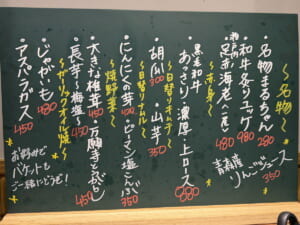 〜名物〜
・名物まるちゃん 280
・和牛炙りユッケ 980
神戸の
・足赤海老(一尾) 480
青森産
りんごジュース 350
〜赤身〜
黒毛和牛
・あっさり・濃厚上ロース 880
〜日替りキムチ〜
・胡瓜 300 ・山芋 350
〜日替りナムル〜
・にんにくの芽 400 ・ピーマン塩こんぶ 350
〜焼野菜〜
・大きな椎茸 450 ・万願寺とうがらし 450
・長芋〜梅塩〜 450
〜ガーリックオイル焼〜
・じゃがいも 480
・アスパラガス 450
お好みで
バケットも
ご一緒にどうぞ!